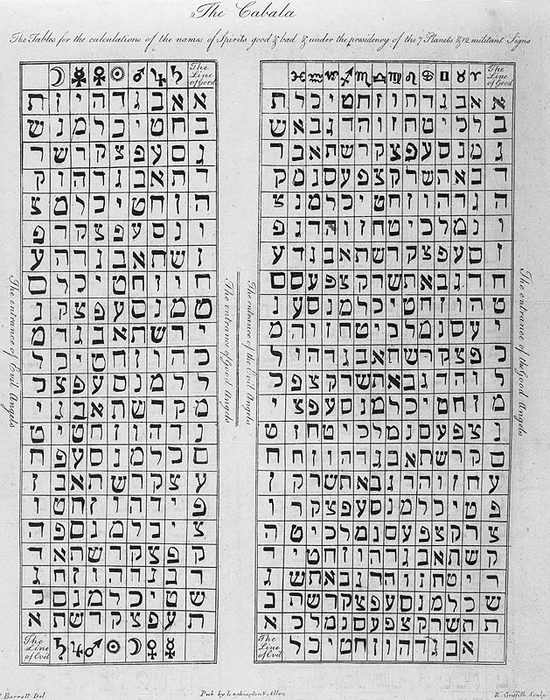 The Cabala
The Tables for the calculations of the names of Spirits good & bad & under the presidency of the 7 Planets & 12 militant Signs
The Line of Good
☽ ☿ ♀ ☉ ♂ ♃ ♄
א א ב ג ד ה ו ז ת
ב ח ט י כ ל מ נ ש
ג ס ע פ צ ק ר ש ר
ד ת א ב ג ד ה ו ק
ה ז ח ט י כ ל מ צ
ו נ ס ע פ צ ק ר פ
ז ש ת א ב ג ד ה ע
ח ו ז ח ט י כ ל ס
ט מ נ ס ע פ צ ק נ
י ר ש ת א ב ג ד מ
כ ה ו ז ח ט י כ ל
ל ל מ נ ס ע פ צ כ
מ ק ר ש ת א ב ג י
נ ד ה ו ז ח ט י ט
ס כ ל מ נ ס ע פ ח
ע צ ק ר ש ת א ב ז
פ ג ד ה ו ז ח ט ו
צ י כ ל מ נ ס ע ה
ק פ צ ק ר ש ת א ד
ר ב ג ד ה ו ז ח ג
ש ט י כ ל מ נ ס ב
ת ע פ צ ק ר ש ת א
The Line of Evil
♄ ♃ ♂ ☉ ♀ ☿
The entrance of Evil Angels
The entrance of Good Angels
The Line of Good
♓ ♒ ♑ ♐ ♏ ♎ ♍ ♌ ♋ ♊ ♉ ♈
א א ב ג ד ה ו ז ח ט י כ ל ת
ב ל כ י ט ח ז ו ה ד ג ב א ש
ג מ נ ס ע פ צ ק ר ש ת א ב ר
ד ב א ת ש ר ק צ פ ע ס נ מ ק
ה ג ד ה ו ז ח ט י כ ל מ נ צ
ו נ מ ל כ י ט ח ז ו ה ד ג פ
ז ס ע פ צ ק ר ש ת א ב ג ד ע
ח ד ג ב א ת ש ר ק צ פ ע ס ס
ט ה ו ז ח ט י כ ל מ נ ס ע נ
י ע ס נ מ ל כ י ט ח ז ו ה מ
כ פ צ ק ר ש ת א ב ג ד ה ו ל
ל ו ה ד ג ב א ת ש ר ק צ פ כ
מ ז ח ט י כ ל מ נ ס ע פ צ י
נ צ פ ע ס נ מ ל כ י ט ח ז ט
ס ק ר ש ת א ב ג ד ה ו ז ח ח
ע ח ז ו ה ד ג ב א ת ש ר ק ז
פ ט י כ ל מ נ ס ע פ צ ק ר ו
צ ר ק צ פ ע ס נ מ ל כ י ט ה
ק ש ת א ב ג ד ה ו ז ח ט י ד
ר י ט ח ז ו ה ד ג ב א ת ש ג
ש כ ל מ נ ס ע פ צ ק ר ש ת ב
ת ת ש ר ק צ פ ע ס נ מ ל כ א
The Line of Evil
א ב ג ד ה ו ז ח ט י כ ל
The entrance of the Evil Angels
The entrance of the Good Angels
Barrett Del.
Pub by Lackington & Allen
R. Griffith Sculp.